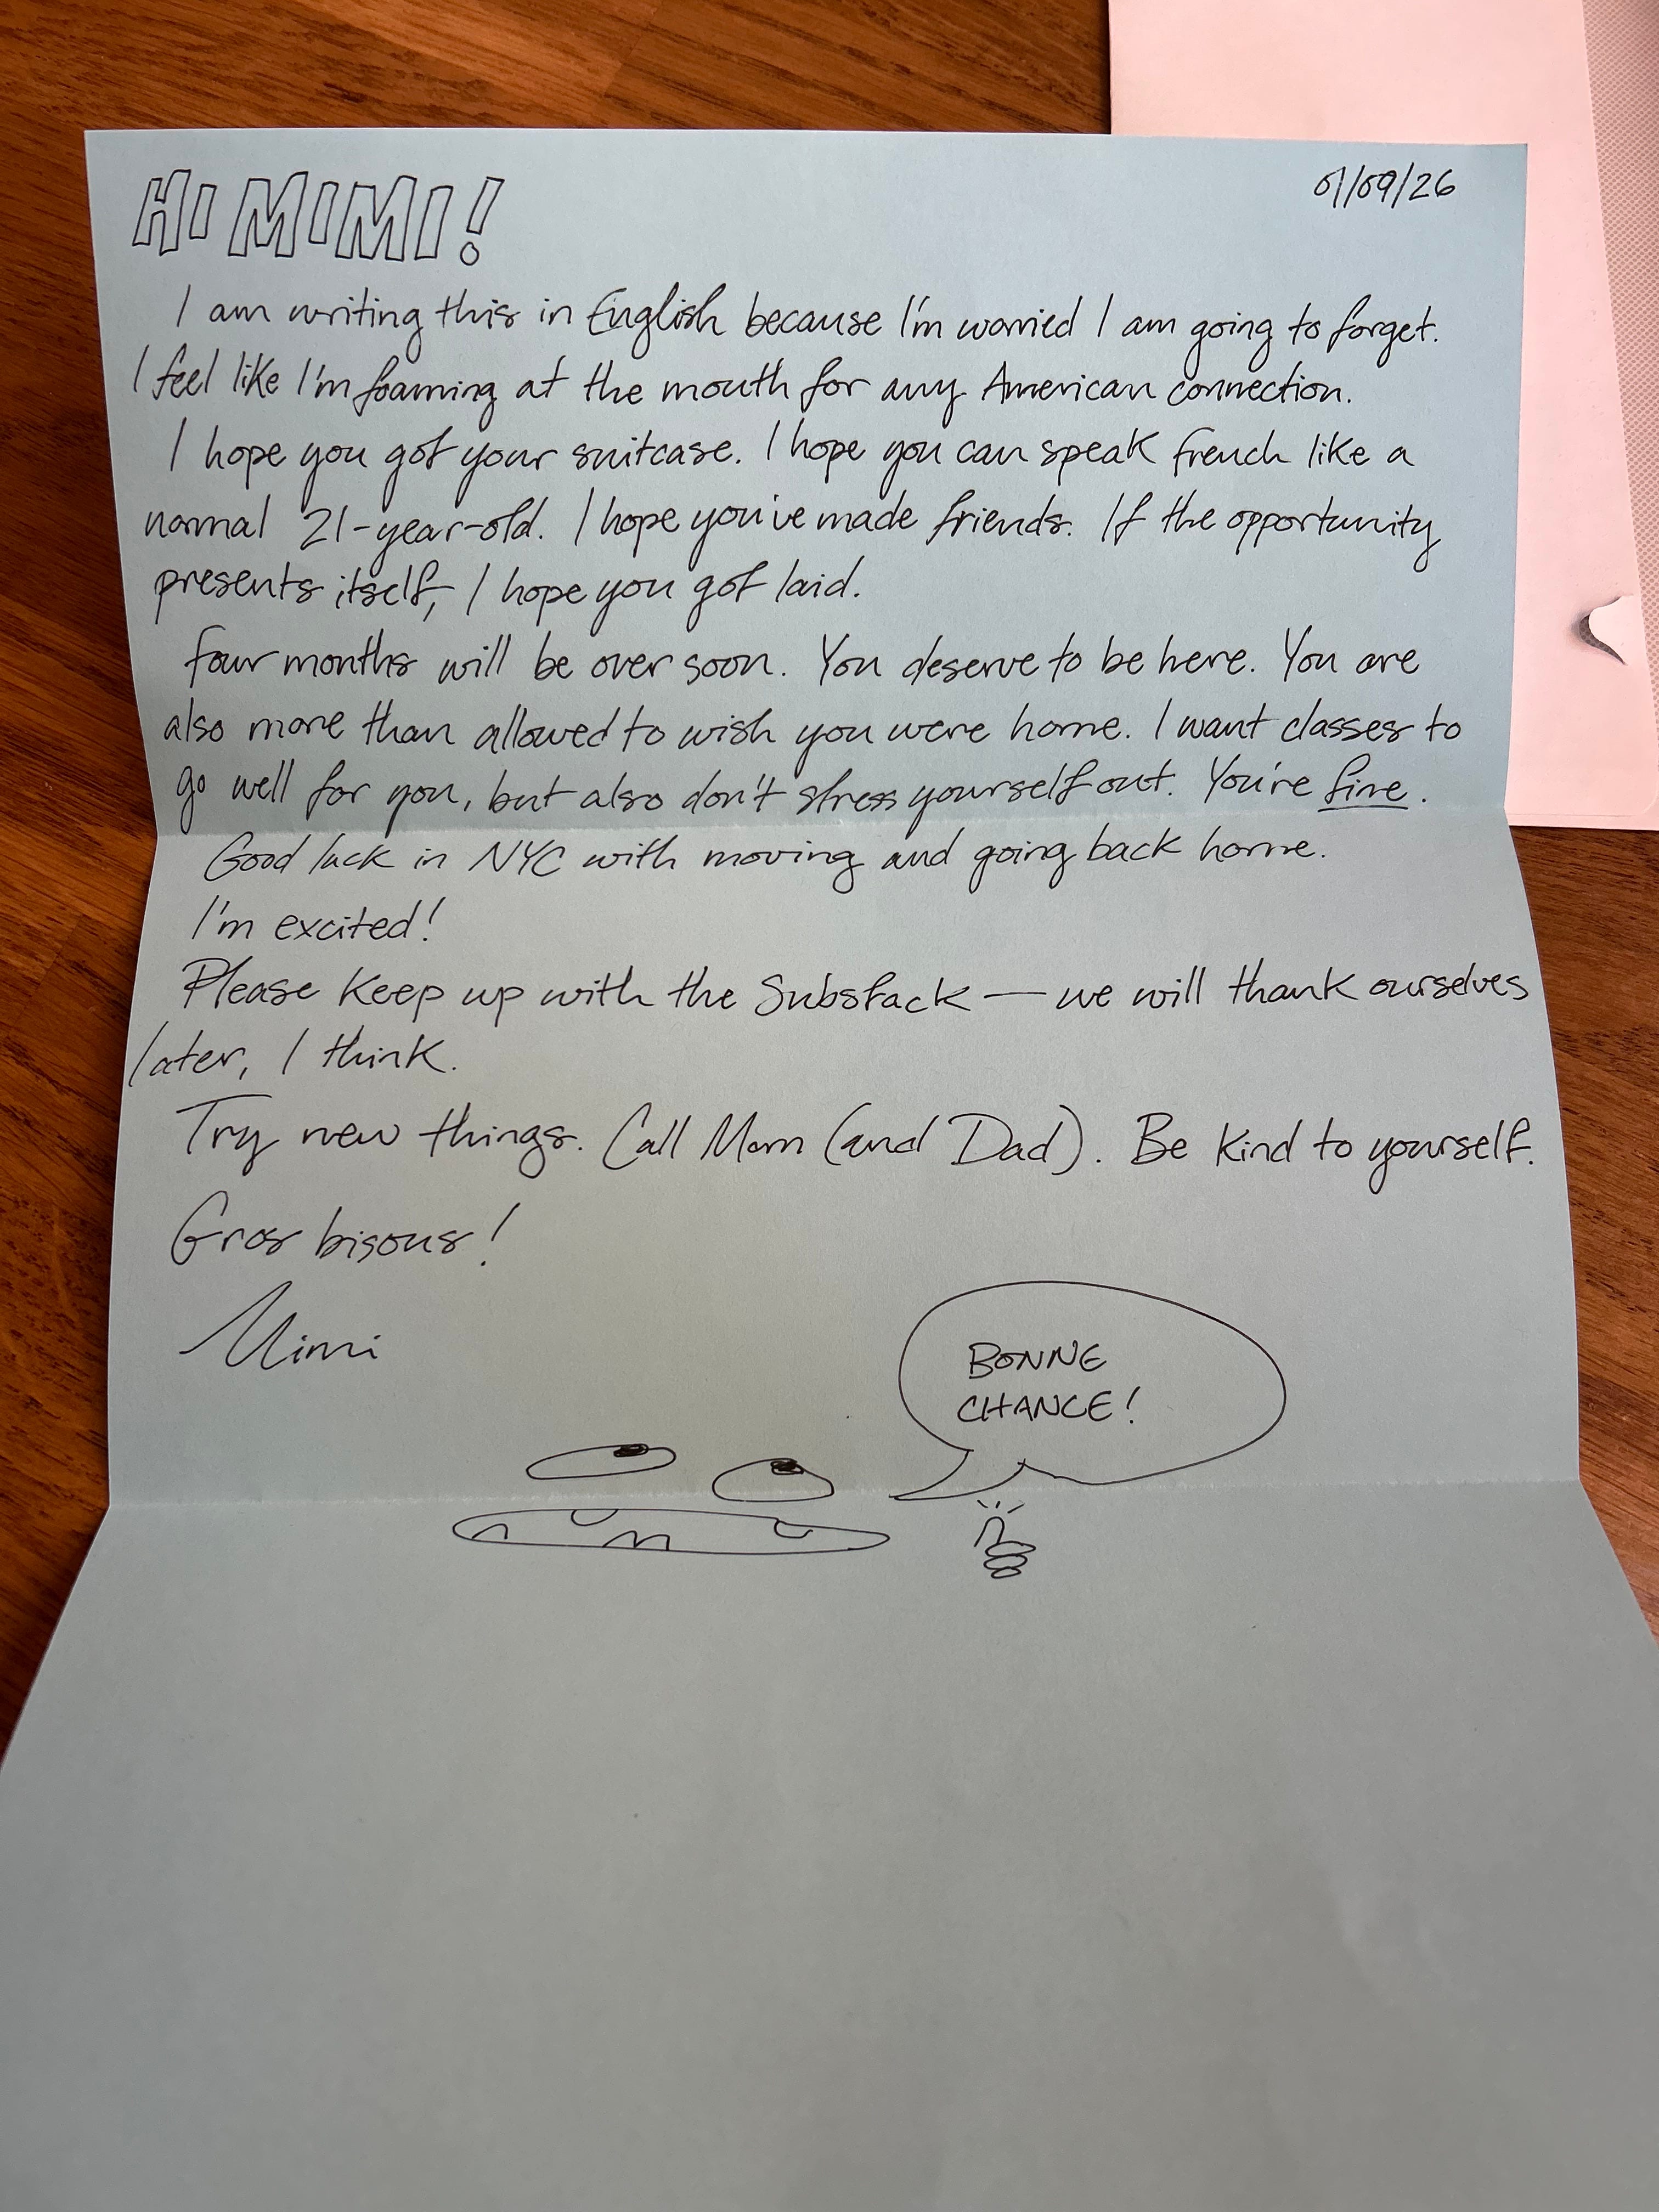 HI MIMI!
01/09/26
I am writing this in English because I'm worried I am going to forget.
I feel like I'm foaming at the mouth for any American connection.
I hope you got your suitcase. I hope you can speak french like a
normal 21-year-old. I hope you've made friends. If the opportunity
presents itself, I hope you got laid.
four months will be over soon. You deserve to be here. You are
also more than allowed to wish you were home. I want classes to
go well for you, but also don't stress yourself out. You're fine.
Good luck in NYC with moving and going back home.
I'm excited!
Please keep up with the Substack — we will thank ourselves
later, I think.
Try new things. Call Mom (and Dad). Be kind to yourself.
Gros bisous!
Mimi
BONNE
CHANCE!